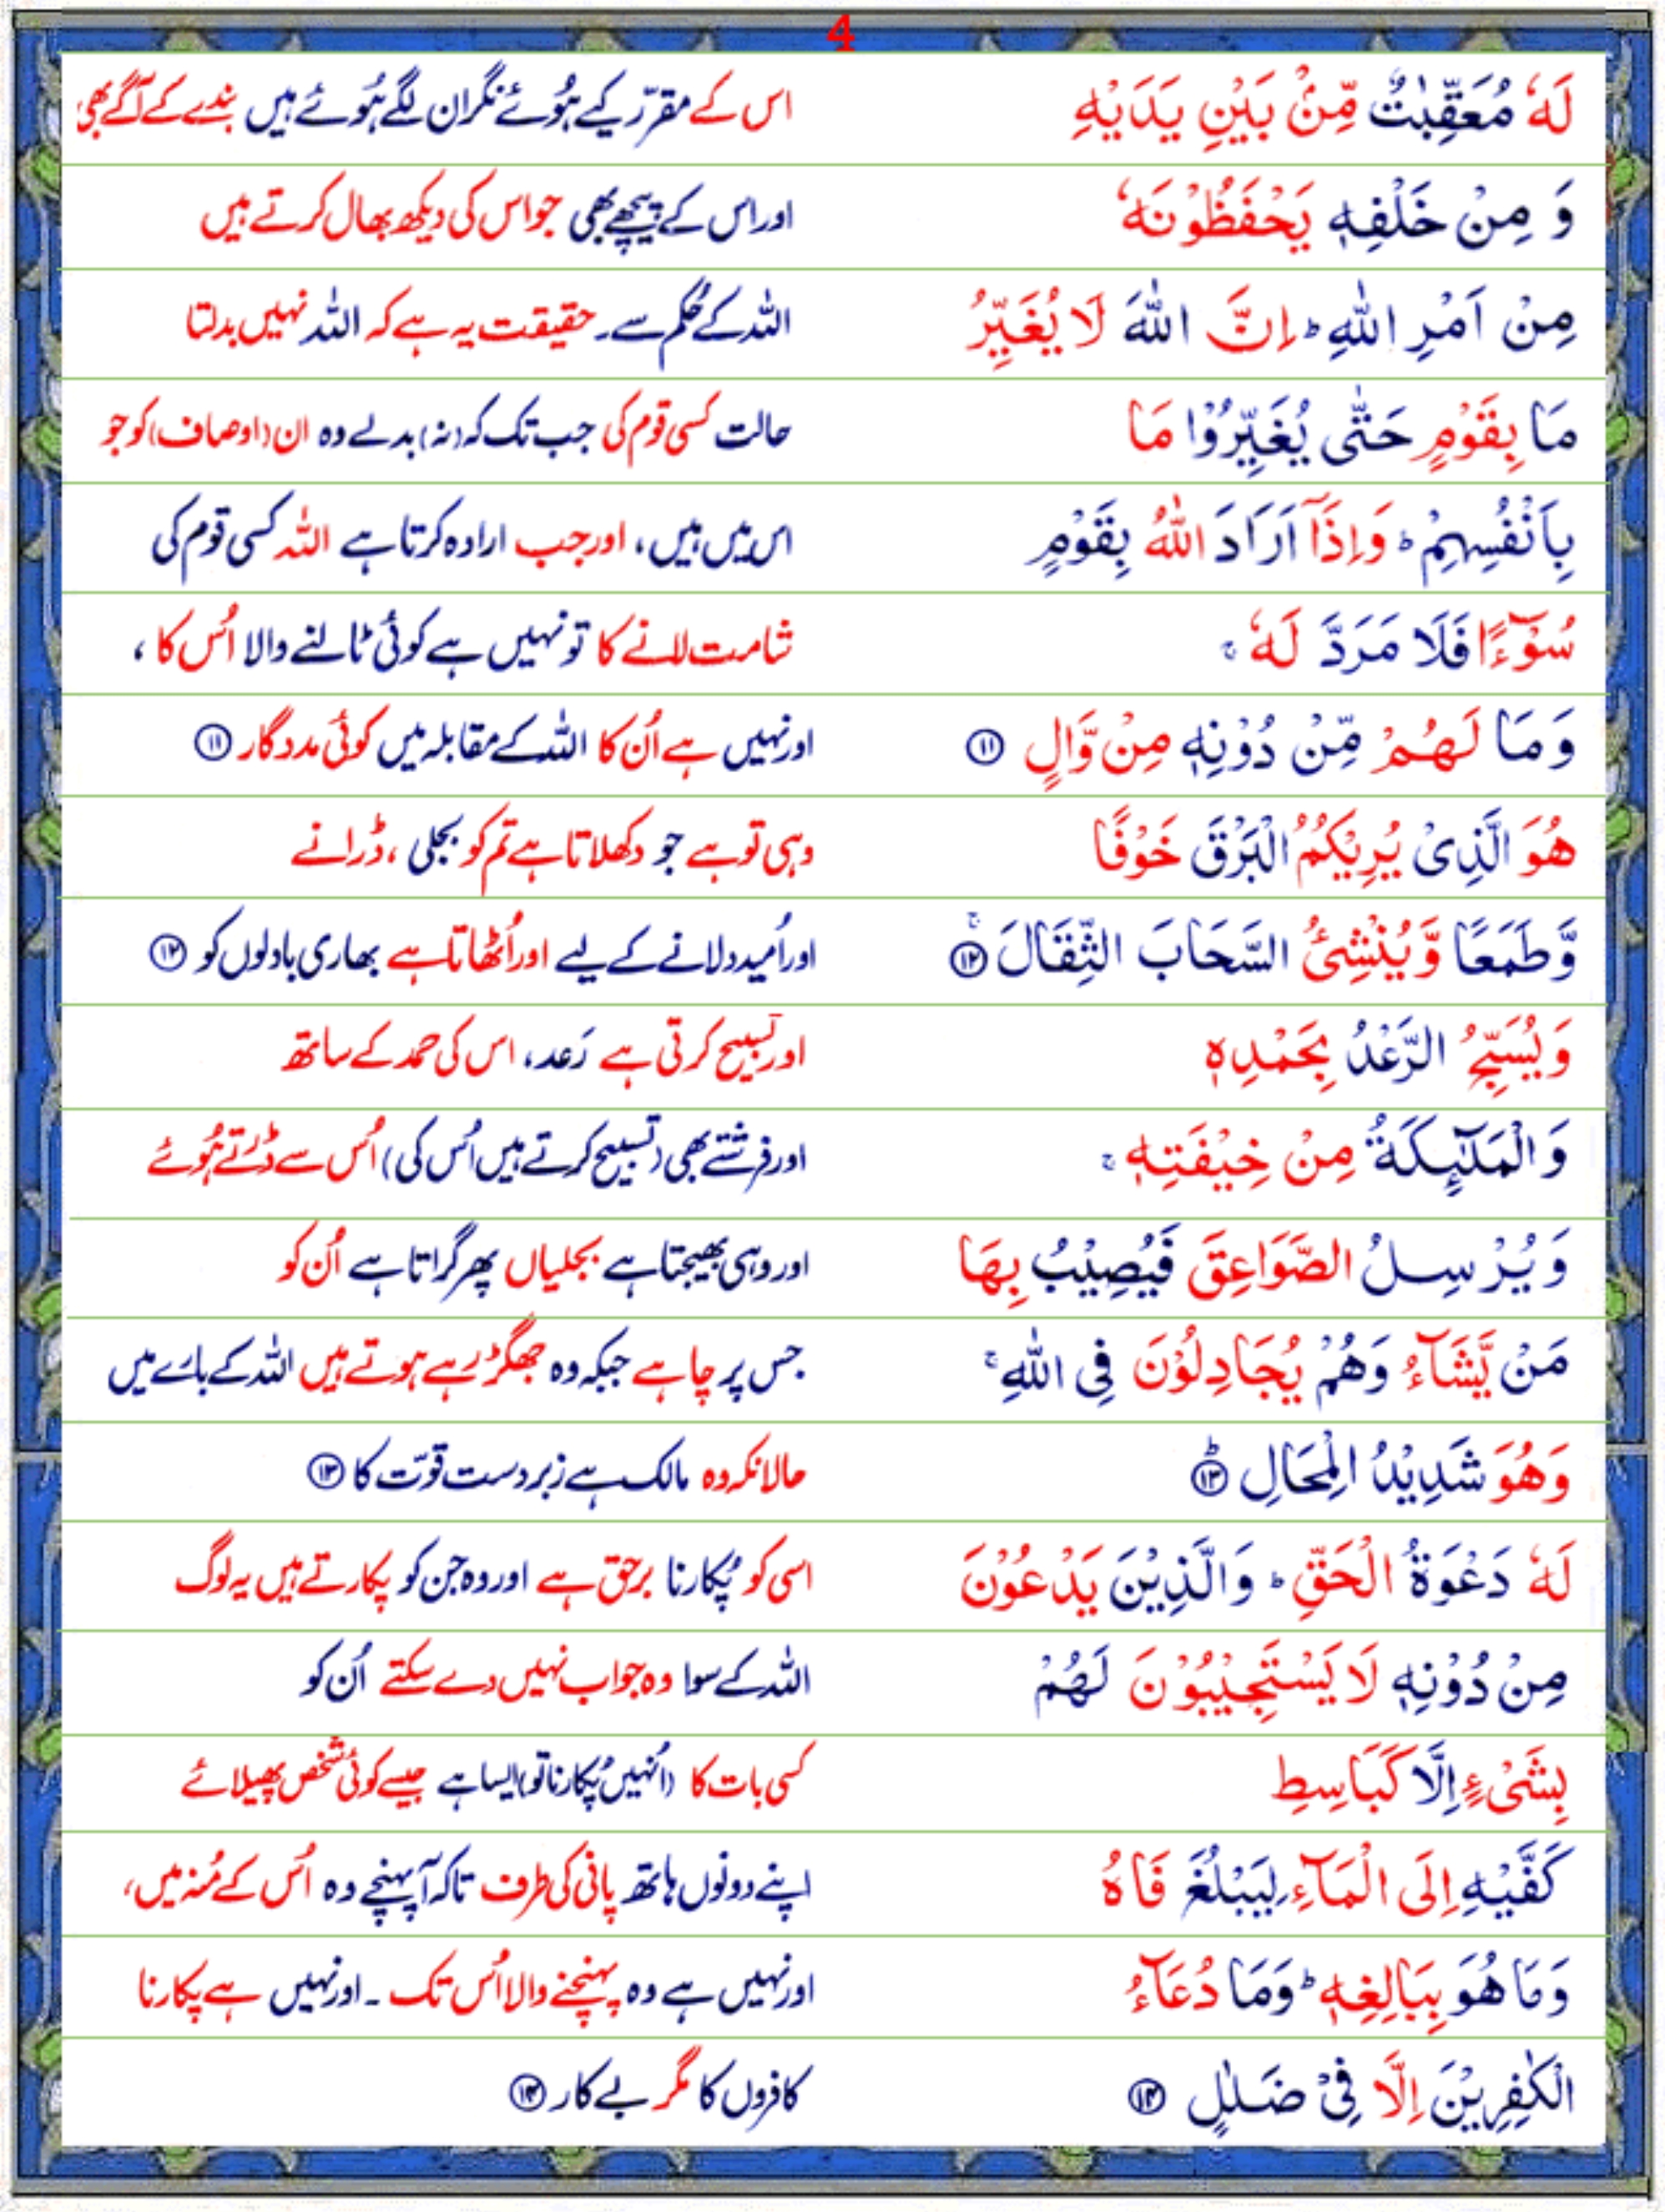 4
لَهٗ مُعَقِّبٰتٌ مِّنْۢ بَيْنِ يَدَيْهِ اس کے مقرّر کیے ہُوئے نگران لگے ہُوئے ہیں بندے کے آگے بھی
وَ مِنْ خَلْفِهٖ يَحْفَظُوْنَهٗ اور اس کے پیچھے بھی جو اس کی دیکھ بھال کرتے ہیں
مِنْ اَمْرِ اللّٰهِ ؕ اِنَّ اللّٰهَ لَا يُغَيِّرُ اللہ کے حُکم سے۔ حقیقت یہ ہے کہ اللہ نہیں بدلتا
مَا بِقَوْمٍ حَتّٰى يُغَيِّرُوْا مَا حالت کسی قوم کی جب تک کہ (نہ) بدلے وہ ان (اوصاف) کو جو
بِاَنْفُسِهِمْ ؕ وَاِذَاۤ اَرَادَ اللّٰهُ بِقَوْمٍ اس میں ہیں، اور جب ارادہ کرتا ہے اللہ کسی قوم کی
سُوْٓءًا فَلَا مَرَدَّ لَهٗ ۚ شامت لانے کا تو نہیں ہے کوئی ٹالنے والا اُس کا ،
وَمَا لَهُمْ مِّنْ دُوْنِهٖ مِنْ وَّالٍ ⑪ اور نہیں ہے اُن کا اللہ کے مقابلہ میں کوئی مددگار ⑪
هُوَ الَّذِىْ يُرِيْكُمُ الْبَرْقَ خَوْفًا وہی تو ہے جو دکھلاتا ہے تم کو بجلی ، ڈرانے
وَّطَمَعًا وَّيُنْشِئُ السَّحَابَ الثِّقَالَ ۚ ⑫ اور اُمید دلانے کے لیے اور اُٹھاتا ہے بھاری بادلوں کو ⑫
وَيُسَبِّحُ الرَّعْدُ بِحَمْدِهٖ اور تسبیح کرتی ہے رَعد، اس کی حمد کے ساتھ
وَالْمَلٰٓئِكَةُ مِنْ خِيْفَتِهٖ ۚ اور فرشتے بھی (تسبیح کرتے ہیں اُس کی) اُس سے ڈرتے ہُوئے
وَيُرْسِلُ الصَّوَاعِقَ فَيُصِيْبُ بِهَا اور وہی بھیجتا ہے بجلیاں پھر گراتا ہے اُن کو
مَنْ يَّشَآءُ وَهُمْ يُجَادِلُوْنَ فِى اللّٰهِ ۚ جس پر چاہے جبکہ وہ جھگڑ رہے ہوتے ہیں اللہ کے بارے میں
وَهُوَ شَدِيْدُ الْمِحَالِ ؕ ⑬ حالانکہ وہ مالک ہے زبردست قوّت کا ⑬
لَهٗ دَعْوَةُ الْحَقِّ ؕ وَالَّذِيْنَ يَدْعُوْنَ اسی کو پُکارنا برحق ہے اور وہ جن کو پکارتے ہیں یہ لوگ
مِنْ دُوْنِهٖ لَا يَسْتَجِيْبُوْنَ لَهُمْ اللہ کے سوا وہ جواب نہیں دے سکتے اُن کو
بِشَىْءٍ اِلَّا كَبَاسِطِ کسی بات کا (اُنہیں پُکارنا تو) ایسا ہے جیسے کوئی شخص پھیلائے
كَفَّيْهِ اِلَى الْمَآءِ لِيَبْلُغَ فَاهُ اپنے دونوں ہاتھ پانی کی طرف تاکہ آ پہنچے وہ اُس کے مُنہ میں،
وَمَا هُوَ بِبَالِغِهٖ ؕ وَمَا دُعَآءُ اور نہیں ہے وہ پہنچنے والا اُس تک ۔ اور نہیں ہے پکارنا
الْكٰفِرِيْنَ اِلَّا فِىْ ضَلٰلٍ ⑭ کافروں کا مگر بے کار ⑭